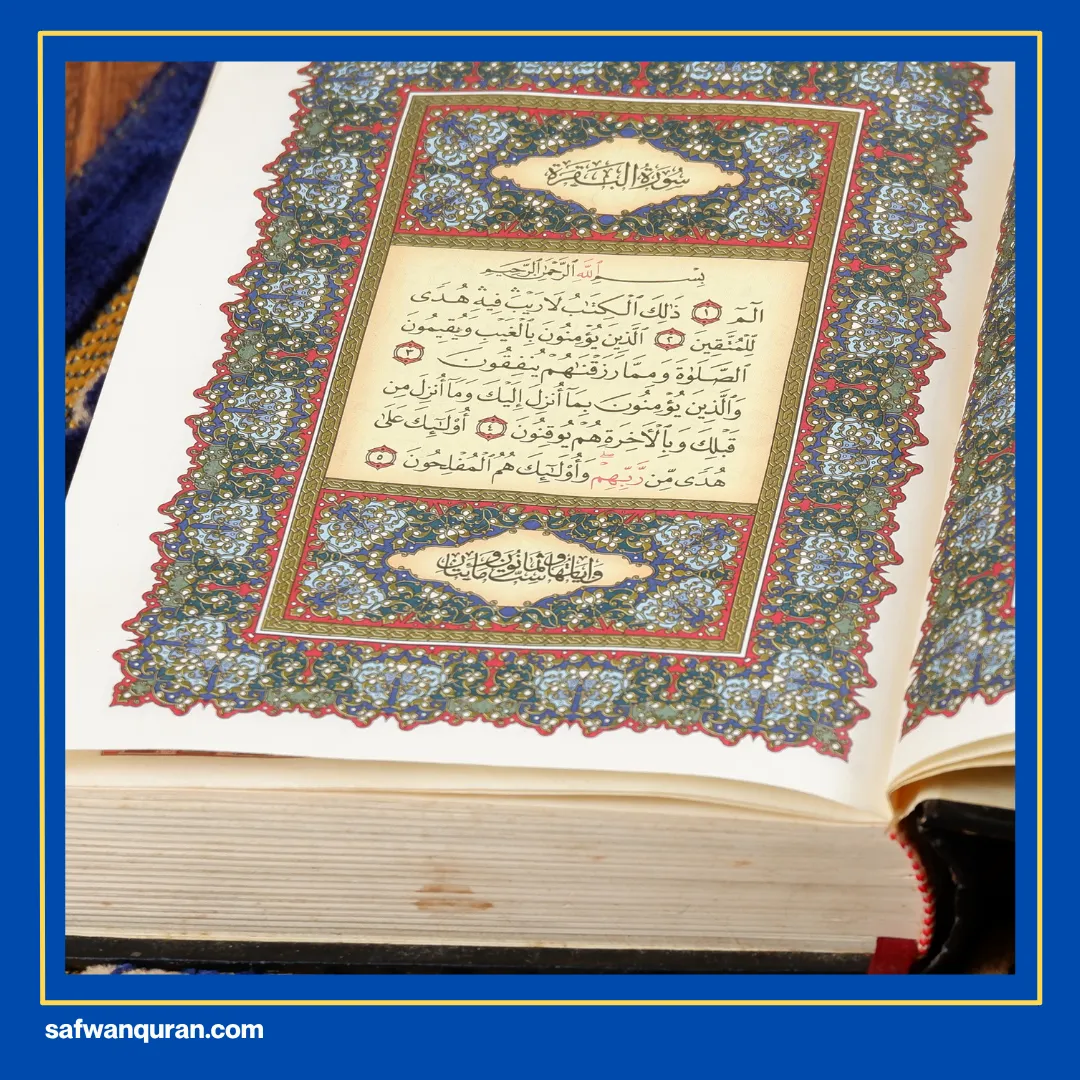 سُورَةُ الْبَقَرَةِ
بِسْمِ ٱللَّهِ ٱلرَّحْمَٰنِ ٱلرَّحِيمِ
الٓمٓ ١ ذَٰلِكَ ٱلْكِتَٰبُ لَا رَيْبَ ۛ فِيهِ ۛ هُدًى
لِّلْمُتَّقِينَ ٢ ٱلَّذِينَ يُؤْمِنُونَ بِٱلْغَيْبِ وَيُقِيمُونَ
ٱلصَّلَوٰةَ وَمِمَّا رَزَقْنَٰهُمْ يُنفِقُونَ ٣
وَٱلَّذِينَ يُؤْمِنُونَ بِمَآ أُنزِلَ إِلَيْكَ وَمَآ أُنزِلَ مِن
قَبْلِكَ وَبِٱلْأَخِرَةِ هُمْ يُوقِنُونَ ٤ أُو۟لَٰٓئِكَ عَلَىٰ
هُدًى مِّن رَّبِّهِمْ ۖ وَأُو۟لَٰٓئِكَ هُمُ ٱلْمُفْلِحُونَ ٥
وَآيَاتُهَا مِائَتَانِ وَسِتٌّ وَثَمَانُونَ
safwanquran.com